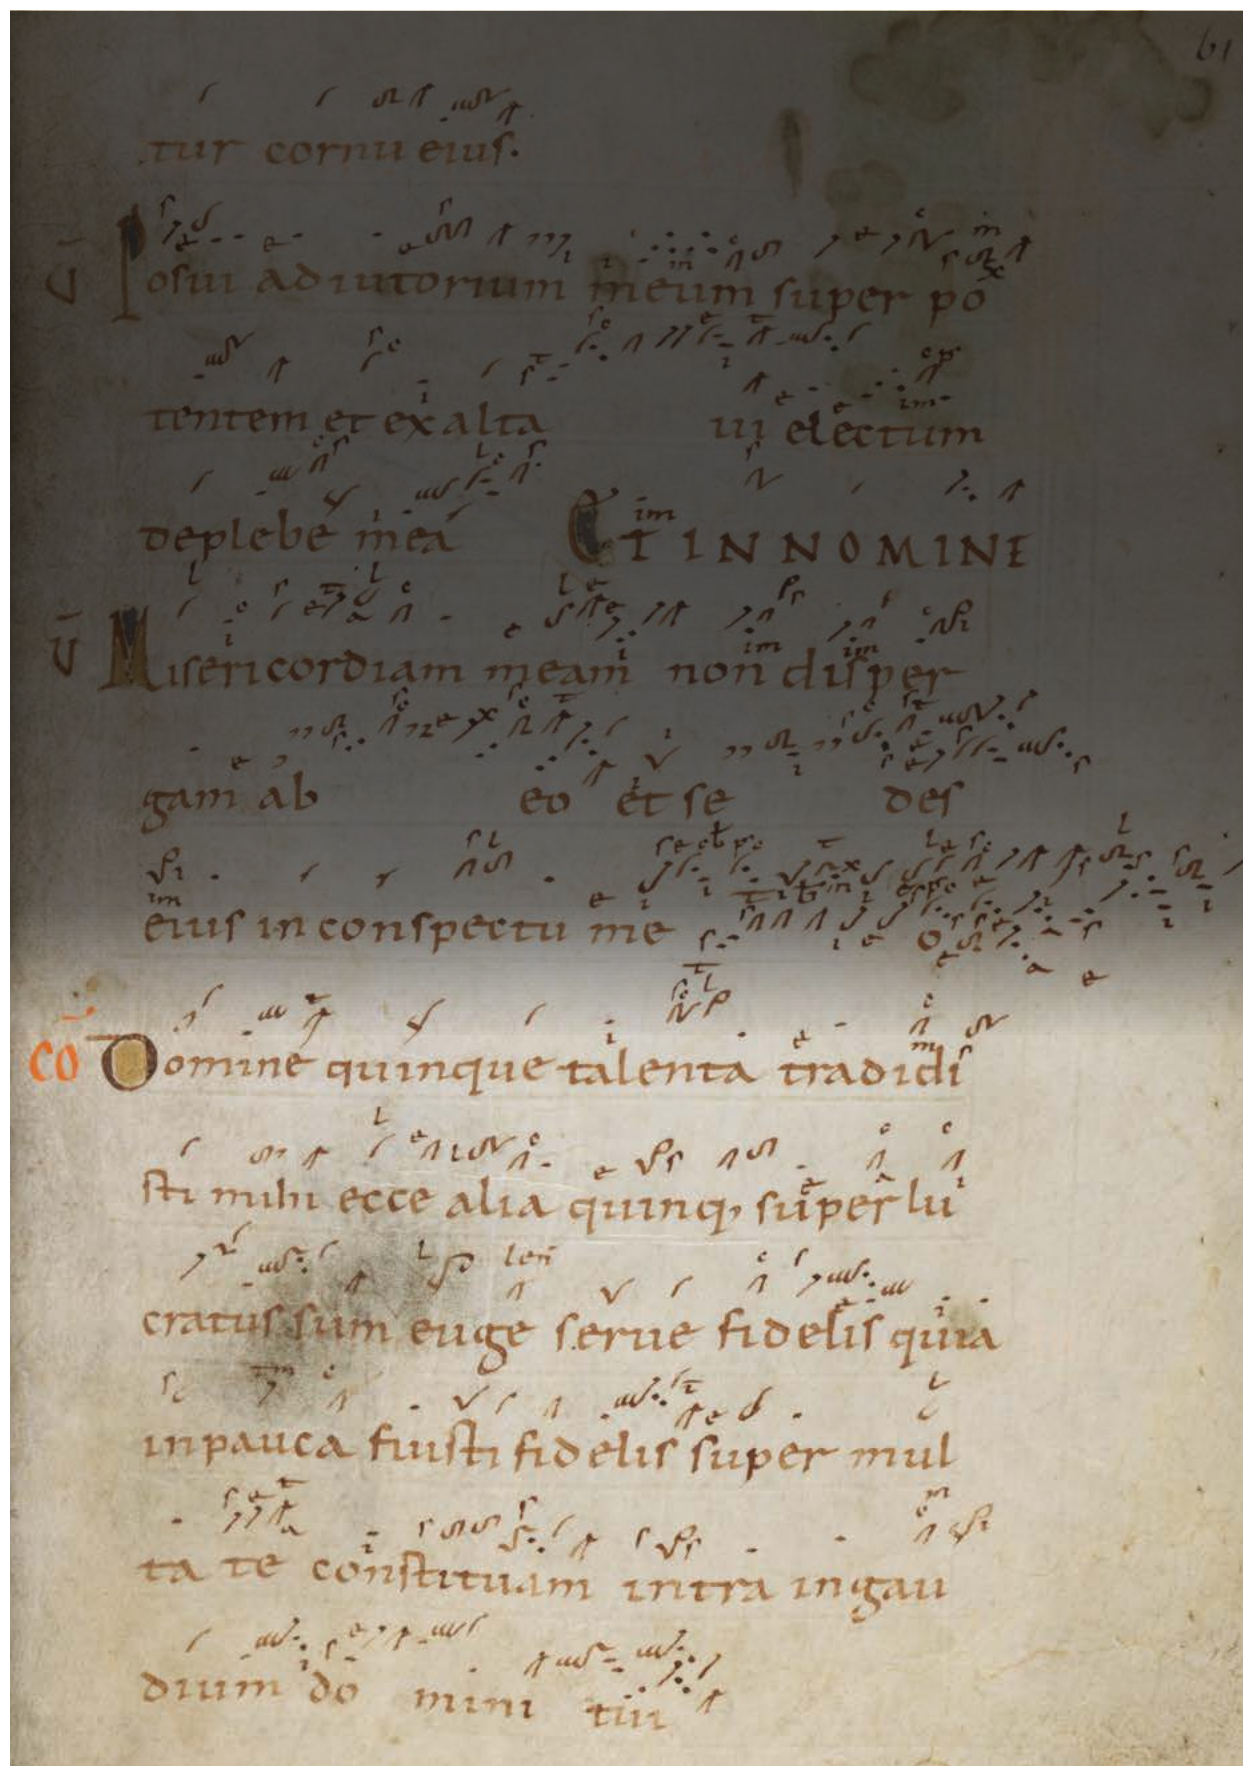 61
tur cornu eius.
V̄ Posui adiutorium meum super po
tentem et exalta ui electum
deplebe mea ET IN NOMINE
V̄ Misericordiam meam non disper
gam ab eo et se des
eius in conspectu me o
CŌ Domine quinque talenta tradidi
sti mihi ecce alia quinq, super lu
cratus sum euge serue fidelis quia
inpauca fuisti fidelis super mul
ta te constituam intra ingau
dium do mini tui